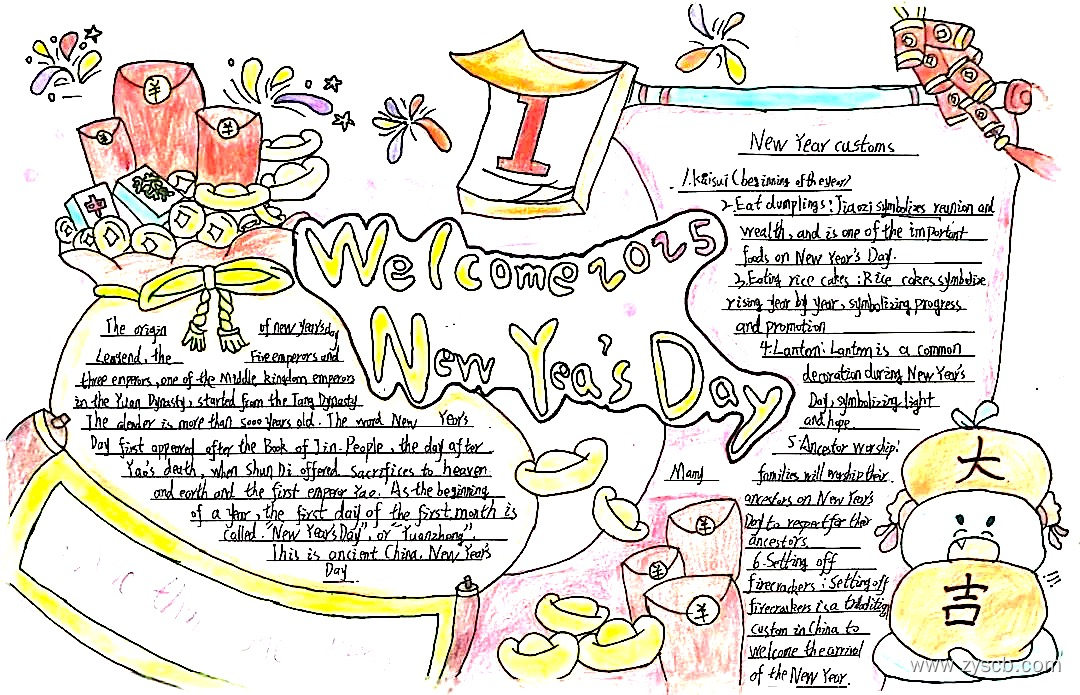 1
Welcome 2025
New Yea's Day
The origin of new Year'sday
Leayend, the Five emperors and
three emperors, one of the Middle kingdom emperors
in the Yuan Dynasty, started from the Tang Dynasty
The alender is more than 5000 years old. The word New Year's
Day first appeared after the Book of Jin. People, the day after
Yao's death, when Shun Di offered Sacrifices to heaven
and earth and the first emperor Yao. As the beginning
of a year, the first day of the first month is
called "New Year's Day", or "Yuanzheng",
This is ancient China, New Year's
Day
New Year customs
1. Kaisui (beginning of the year)
2. Eat dumplings: Jiaozi symbolizes reunion and
wealth, and is one of the important
foods on New Year's Day.
3. Eating rice cakes: Rice cakes symbolize
rising year by year, symbolizing progress
and promotion
4. Lantorn: Lantorn is a common
decoration during New Year's
Day, symbolizing light
and hope
5 Ancestor worship:
Many families will worship their
ancestors on New Year's
Day to respect for their
ancestors
6. Setting off
firecrackers: Setting off
firecrackers is a
custom in China to
welcome the arrival
of the New Year.
大
吉
www.zyscb.com